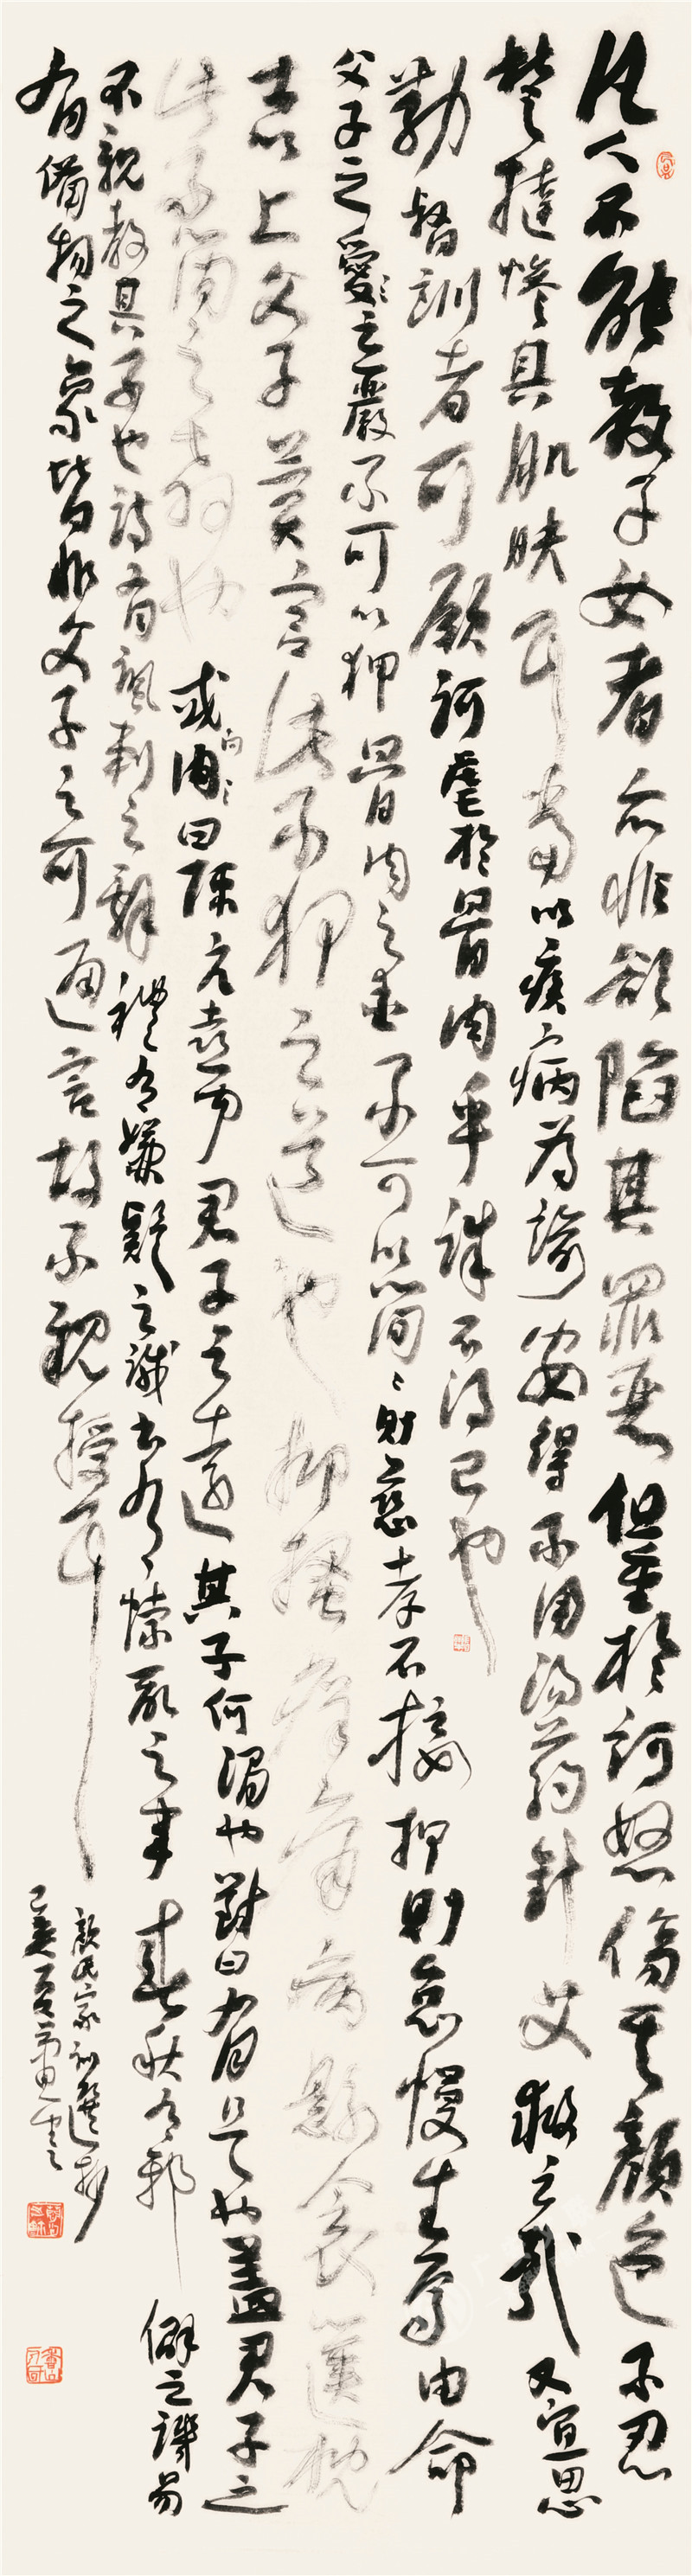 凡人不能教子女者亦非欲陷其罪惡但重於訶怒傷其顏色不忍
楚撻慘其肌膚耳當以疾病為諭安得不用湯藥針艾救之哉又宜思
勤督訓者可願訶虐於骨肉乎誠不得已也
父子之嚴不可以狎骨肉之愛不可以簡簡則慈孝不接狎則怠慢生焉由命
士以上父子異宮此不狎之道也抑搔癢痛病懸衾篋枕
此不簡之教也或問曰陳亢喜聞君子之遠其子何謂也對曰有是也蓋君子之
不親教其子也詩有諷刺之辭禮有嫌疑之誡書有悖亂之事春秋有邪僻之譏易
有備物之象皆非父子之可通言故不親授耳
顏氏家訓選抄
己亥